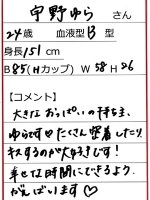 宇野ゆら さん
24歳 血液型B型
身長151cm
B85(Hカップ) W58 H86
【コメント】
大きなおっぱいの持ち主、
ゆらです♡たくさん密着したり
キスするのが大好きです!
幸せな時間にできるよう、
がんばります♡